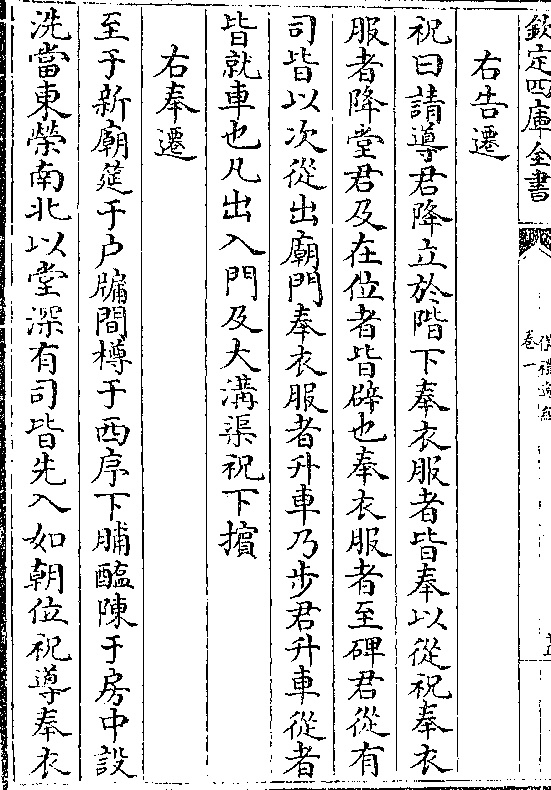 欽定四庫全書
卷一
右告遷
祝曰請導君降立於階下奉衣服者皆奉以從祝奉衣
服者降堂君及在位者皆辟也奉衣服者至碑君從有
司皆以次從出廟門奉衣服者升車乃步君升車從者
皆就車也凡出入門及大溝渠祝下擯
右奉遷
至于新廟筵于户牖間樽于西序下脯醢陳于房中設
洗當東榮南北以堂深有司皆先入如朝位祝導奉衣